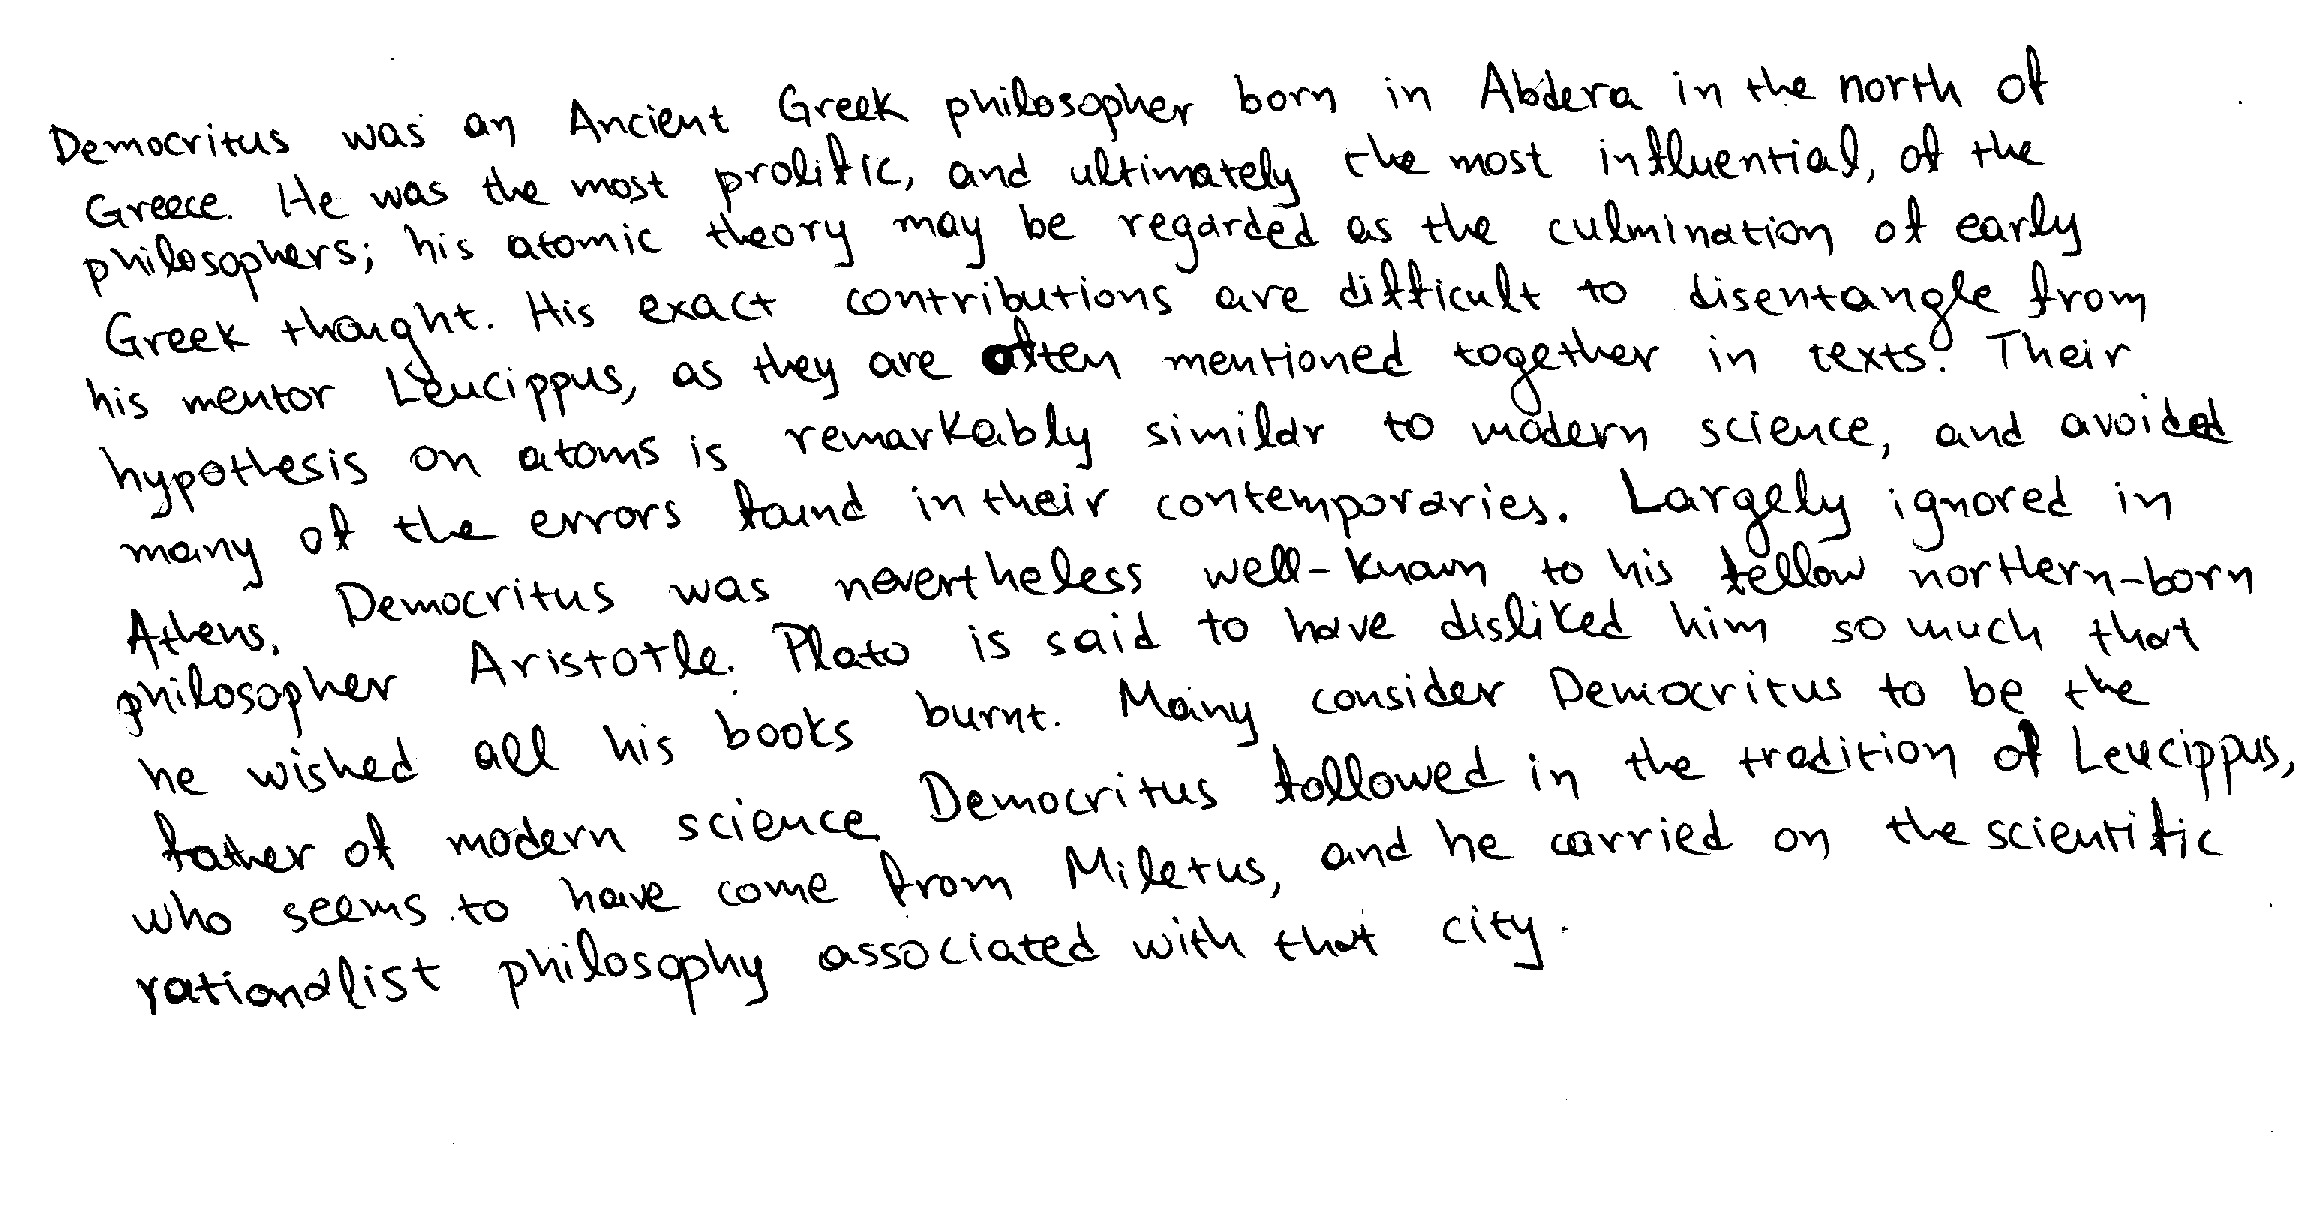 Democritus was an Ancient Greek philosopher born in Abdera in the north of
Greece. He was the most prolific, and ultimately the most influential, of the
philosophers; his atomic theory may be regarded as the culmination of early
Greek thought. His exact contributions are difficult to disentangle from
his mentor Leucippus, as they are often mentioned together in texts. Their
hypothesis on atoms is remarkably similar to modern science, and avoided
many of the errors found in their contemporaries. Largely ignored in
Athens, Democritus was nevertheless well-known to his fellow northern-born
philosopher Aristotle. Plato is said to have disliked him so much that
he wished all his books burnt. Many consider Democritus to be the
father of modern science Democritus followed in the tradition of Leucippus,
who seems to have come from Miletus, and he carried on the scientific
rationalist philosophy associated with that city.